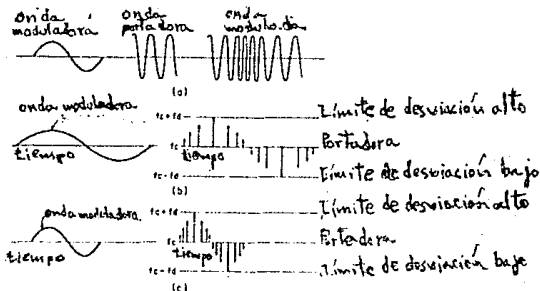 onda moduladora
onda portadora
onda modulada
(a)
onda moduladora
tiempo
fc+fd
fc
tiempo
fc-fd
Límite de desviación alto
Portadora
Límite de desviación bajo
(b)
onda moduladora
tiempo
fc+fd
fc
tiempo
fc-fd
Límite de desviación alto
Portadora
Límite de desviación baje
(c)